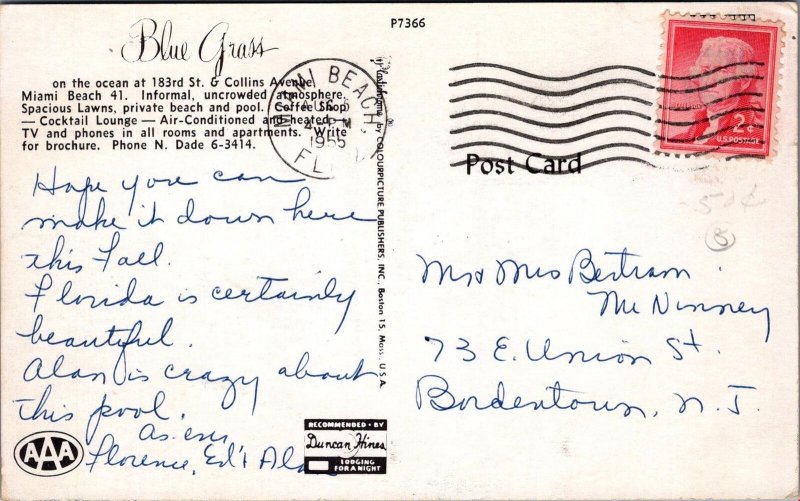 P7366
Blue Grass
on the ocean at 183rd St. & Collins Avenue,
Miami Beach 41. Informal, uncrowded atmosphere.
Spacious Lawns, private beach and pool. Coffee Shop
— Cocktail Lounge — Air-Conditioned and heated.
TV and phones in all rooms and apartments. Write
for brochure. Phone N. Dade 6-3414.
MIAMI BEACH,
AUG 5
PM
1955
FLA.
Plastichrome by COLOURPICTURE PUBLISHERS, INC., Boston 15, Mass., U.S.A.
2¢
U.S. POSTAGE
Post Card
50¢
B
Hope you can
make it down here
this Fall.
Florida is certainly
beautiful.
Alan is crazy about
this pool.
As ever,
Florence, Ed & Alan
Mr & Mrs Bertram
McNinney
73 E. Union St.
Bordentown, N.J.
AAA
RECOMMENDED · BY
Duncan Hines
LODGING
FOR A NIGHT